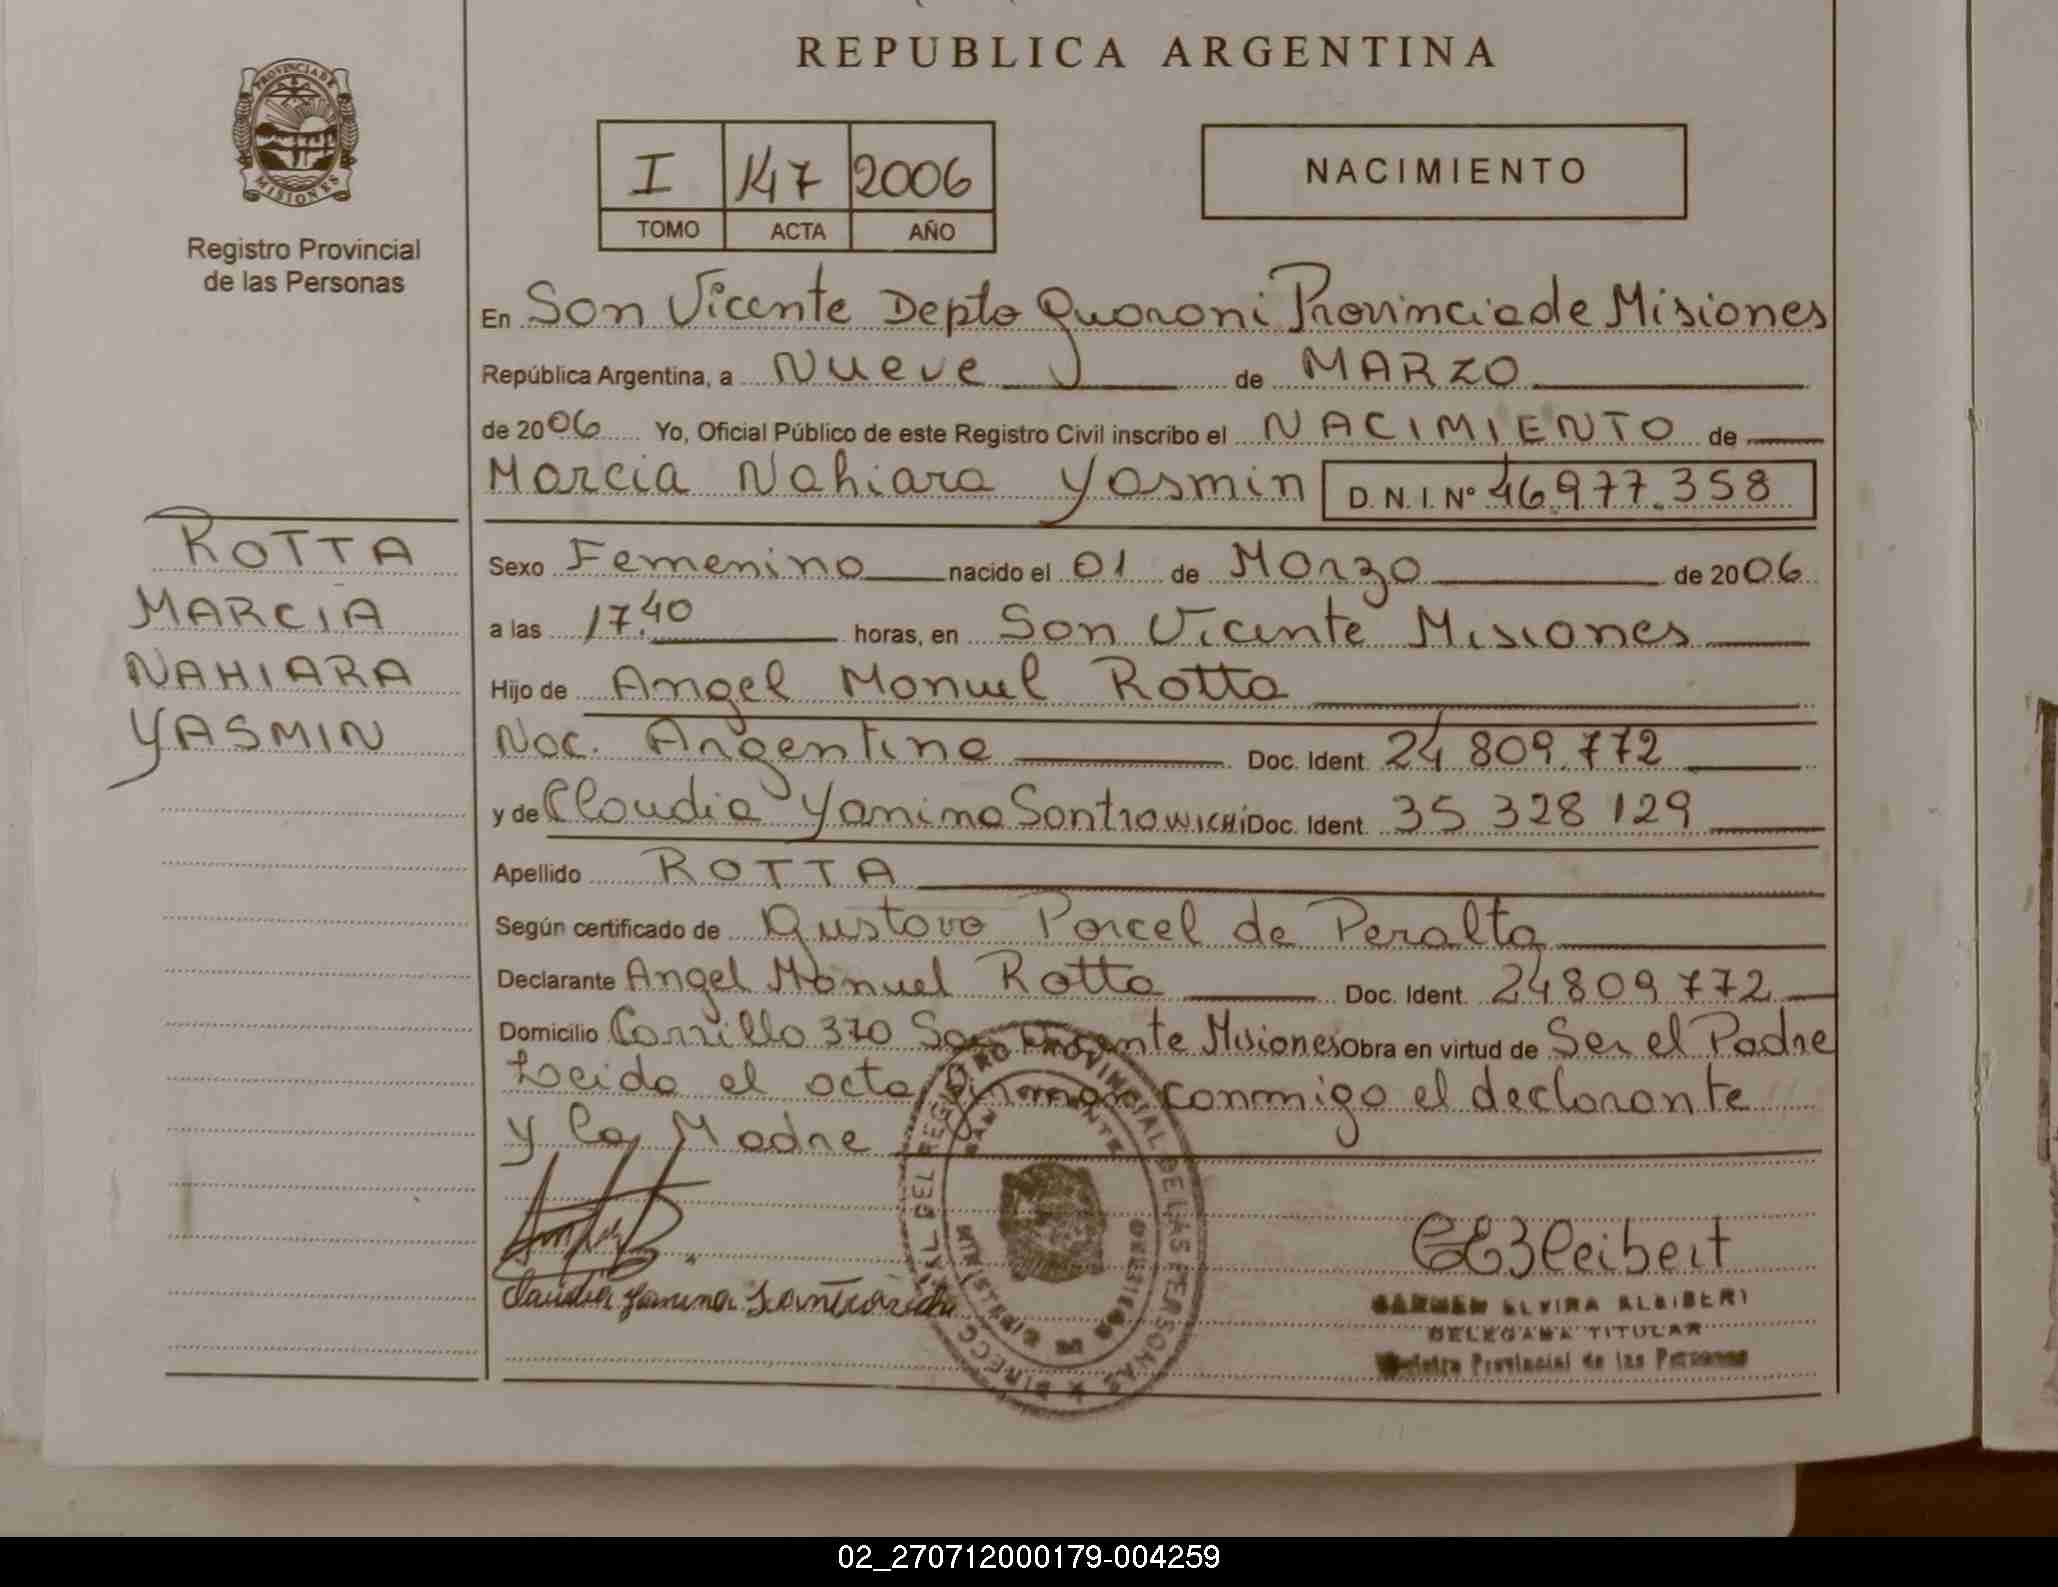 REPUBLICA ARGENTINA
PROVINCIA DE
MISIONES
Registro Provincial
de las Personas
I 147 2006
TOMO ACTA AÑO
NACIMIENTO
En San Vicente Depto Guarani Provincia de Misiones
República Argentina, a Nueve de MARZO
de 2006 Yo, Oficial Público de este Registro Civil inscribo el NACIMIENTO de
Marcia Nahiara Yasmin D. N. I. Nº 46.977.358
ROTTA
MARCIA
NAHIARA
YASMIN
Sexo Femenino nacido el 01 de Marzo de 2006
a las 17.40 horas, en San Vicente Misiones
Hijo de Angel Manuel Rotta
Nac. Argentina Doc. Ident. 24 809.772
y de Claudia Yanina Santrowichi Doc. Ident. 35 328 129
Apellido ROTTA
Según certificado de Gustavo Porcel de Peralta
Declarante Angel Manuel Rotta Doc. Ident. 24809772
Domicilio Carrillo 370 San Vicente Misiones Obra en virtud de Ser el Padre
Leida el acta firman conmigo el declarante
y la Madre
Claudia Yanina
DEL REGISTRO PROVINCIAL DE LAS PERSONAS
SAN VICENTE
CARMEN ELVIRA KLEIBERT
DELEGADA TITULAR
Registro Provincial de las Personas
02_270712000179-004259